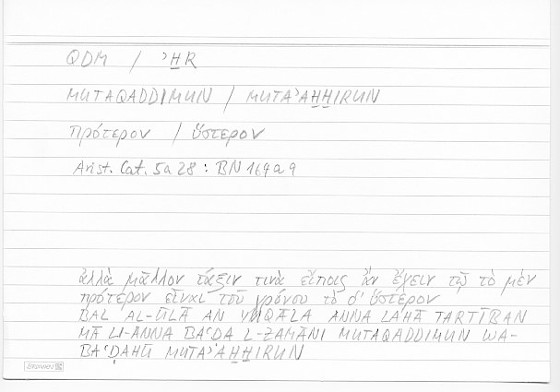 QDM / ʾH̱R
MUTAQADDIMUN / MUTAʾAH̱H̱IRUN
πρότερον / ὕστερον
Arist. Cat. 5a28 : BN 164a9
ἀλλὰ μᾶλλον τάξιν τινὰ εἴποις ἂν ἔχειν τῷ τὸ μὲν
πρότερον εἶναι τοῦ χρόνου τὸ δ' ὕστερον
BAL AL-ŪLĀ AN YUQĀLA ANNA LAHĀ TARTĪBAN
MĀ LI-ANNA BAʿḌA L-ZAMĀNI MUTAQADDIMUN WA-
BAʿḌAHŪ MUTAʾAH̱H̱IRUN